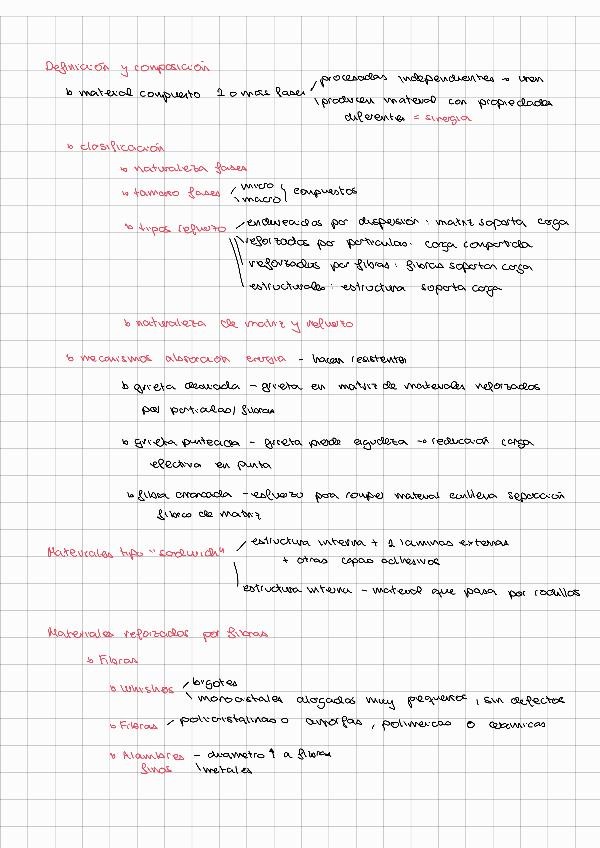 Definición y composición
↳ material compuesto 2 o más fases / procesadas independientes → unen
\ producen material con propiedades
diferentes = sinergia
↳ clasificación
↳ naturaleza fases
↳ tamaño fases / micro \ macro compuestos
↳ tipos refuerzo / endurecidos por dispersión : matriz soporta carga
reforzados por partículas : carga compartida
reforzados por fibras : fibras soportan carga
estructurales : estructura soporta carga
↳ naturaleza de matriz y refuerzo
↳ mecanismos absorción energía - hacen resistentes
↳ grieta desviada - grieta en matriz de materiales reforzados
por partículas/ fibras
↳ grieta punteada - grieta pierde agudeza → reducción carga
efectiva en punta
↳ fibra arrancada - esfuerzo para romper material conlleva separación
fibra de matriz
Materiales tipo "sandwich" / estructura interna + 2 láminas externas
+ otras capas adhesivos
estructura interna - material que pasa por rodillos
Materiales reforzados por fibras
↳ Fibras
↳ Whiskers / bigotes
\ monocristales alargados muy pequeños , sin defectos
↳ Fibras / policristalinas o amorfas , poliméricas o cerámicas
↳ Alambres - diámetro ↑ a fibras
finos \ metales